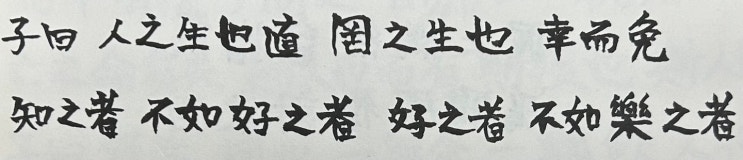 子曰 人之生也直 罔之生也 幸而免
知之者 不如好之者 好之者 不如樂之者